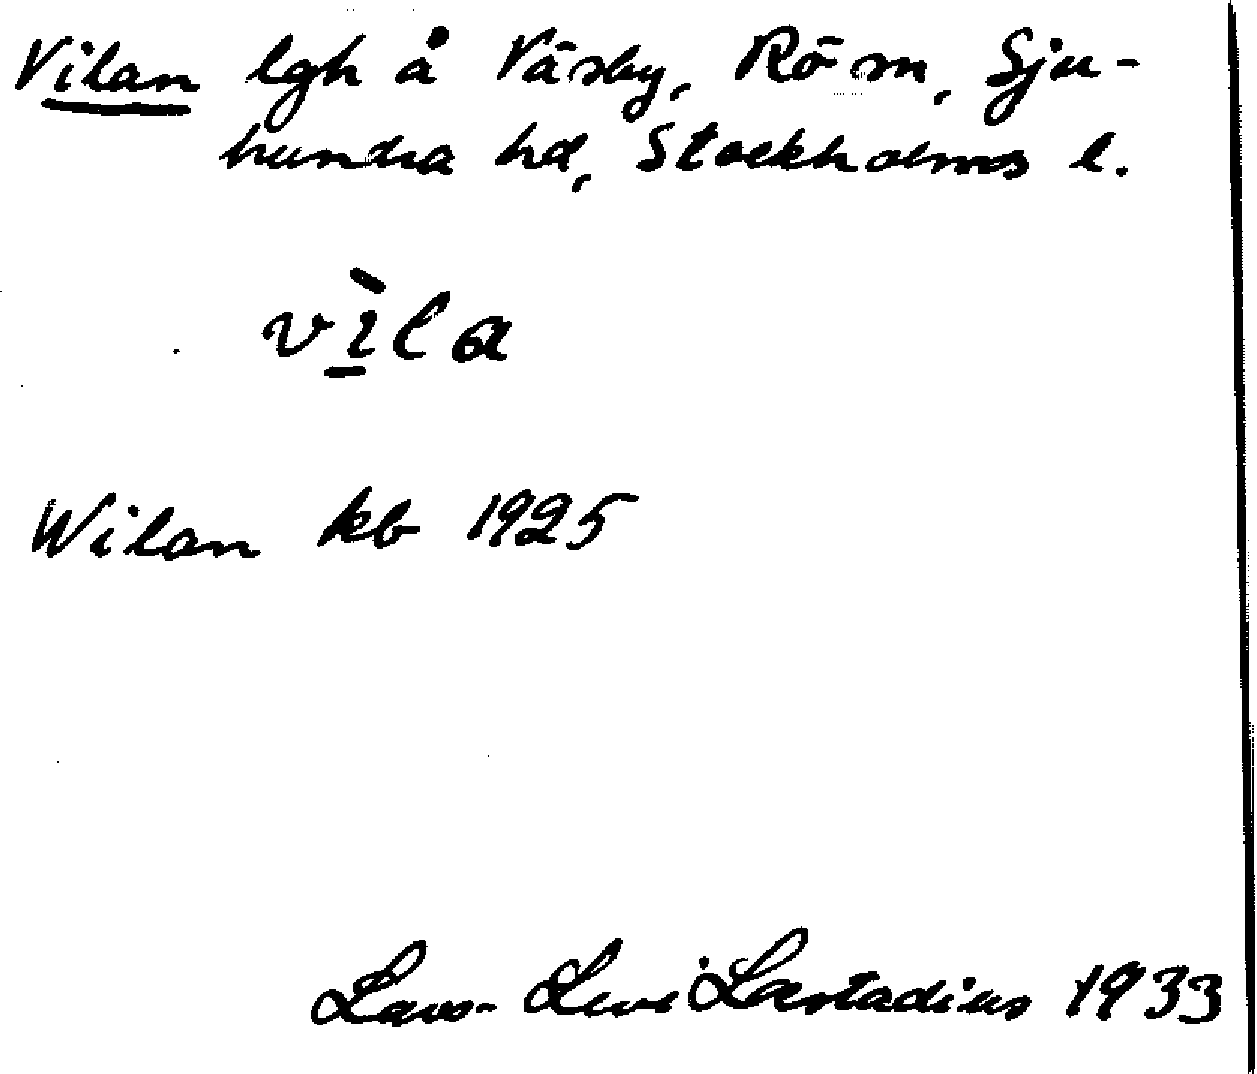 Vilan lgh å Väsby, Rö sn, Sju-
hundra hd, Stockholms l.
vìla
Wilan kb 1925
Lars-Levi Læstadius 1933